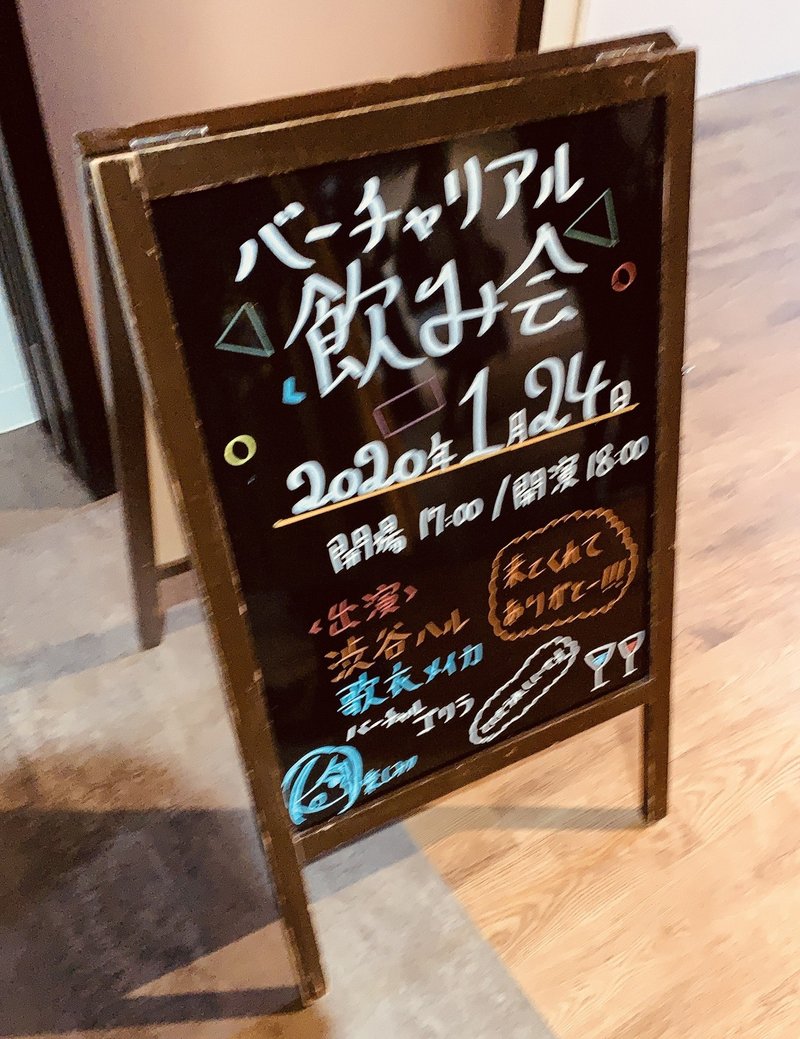 バーチャリアル
飲み会
2020年1月24日
開場 17:00 / 開演 18:00
来てくれて
ありがとー!!!
<出演>
渋谷ハル
歌衣メイカ
バーチャル
エクラ